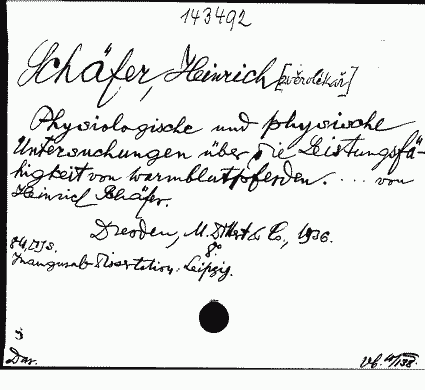 143492
Schäfer, Heinrich [zvěrolékař]
Physiologische und physische
Untersuchungen über die Leistungsfä-
higkeit von warmblutpferden. ... von
Heinrich Schäfer.
Dresden, M. & Co., 1936.
8°
S.
Inaugural-Dissertation: Leipzig.
Dar.